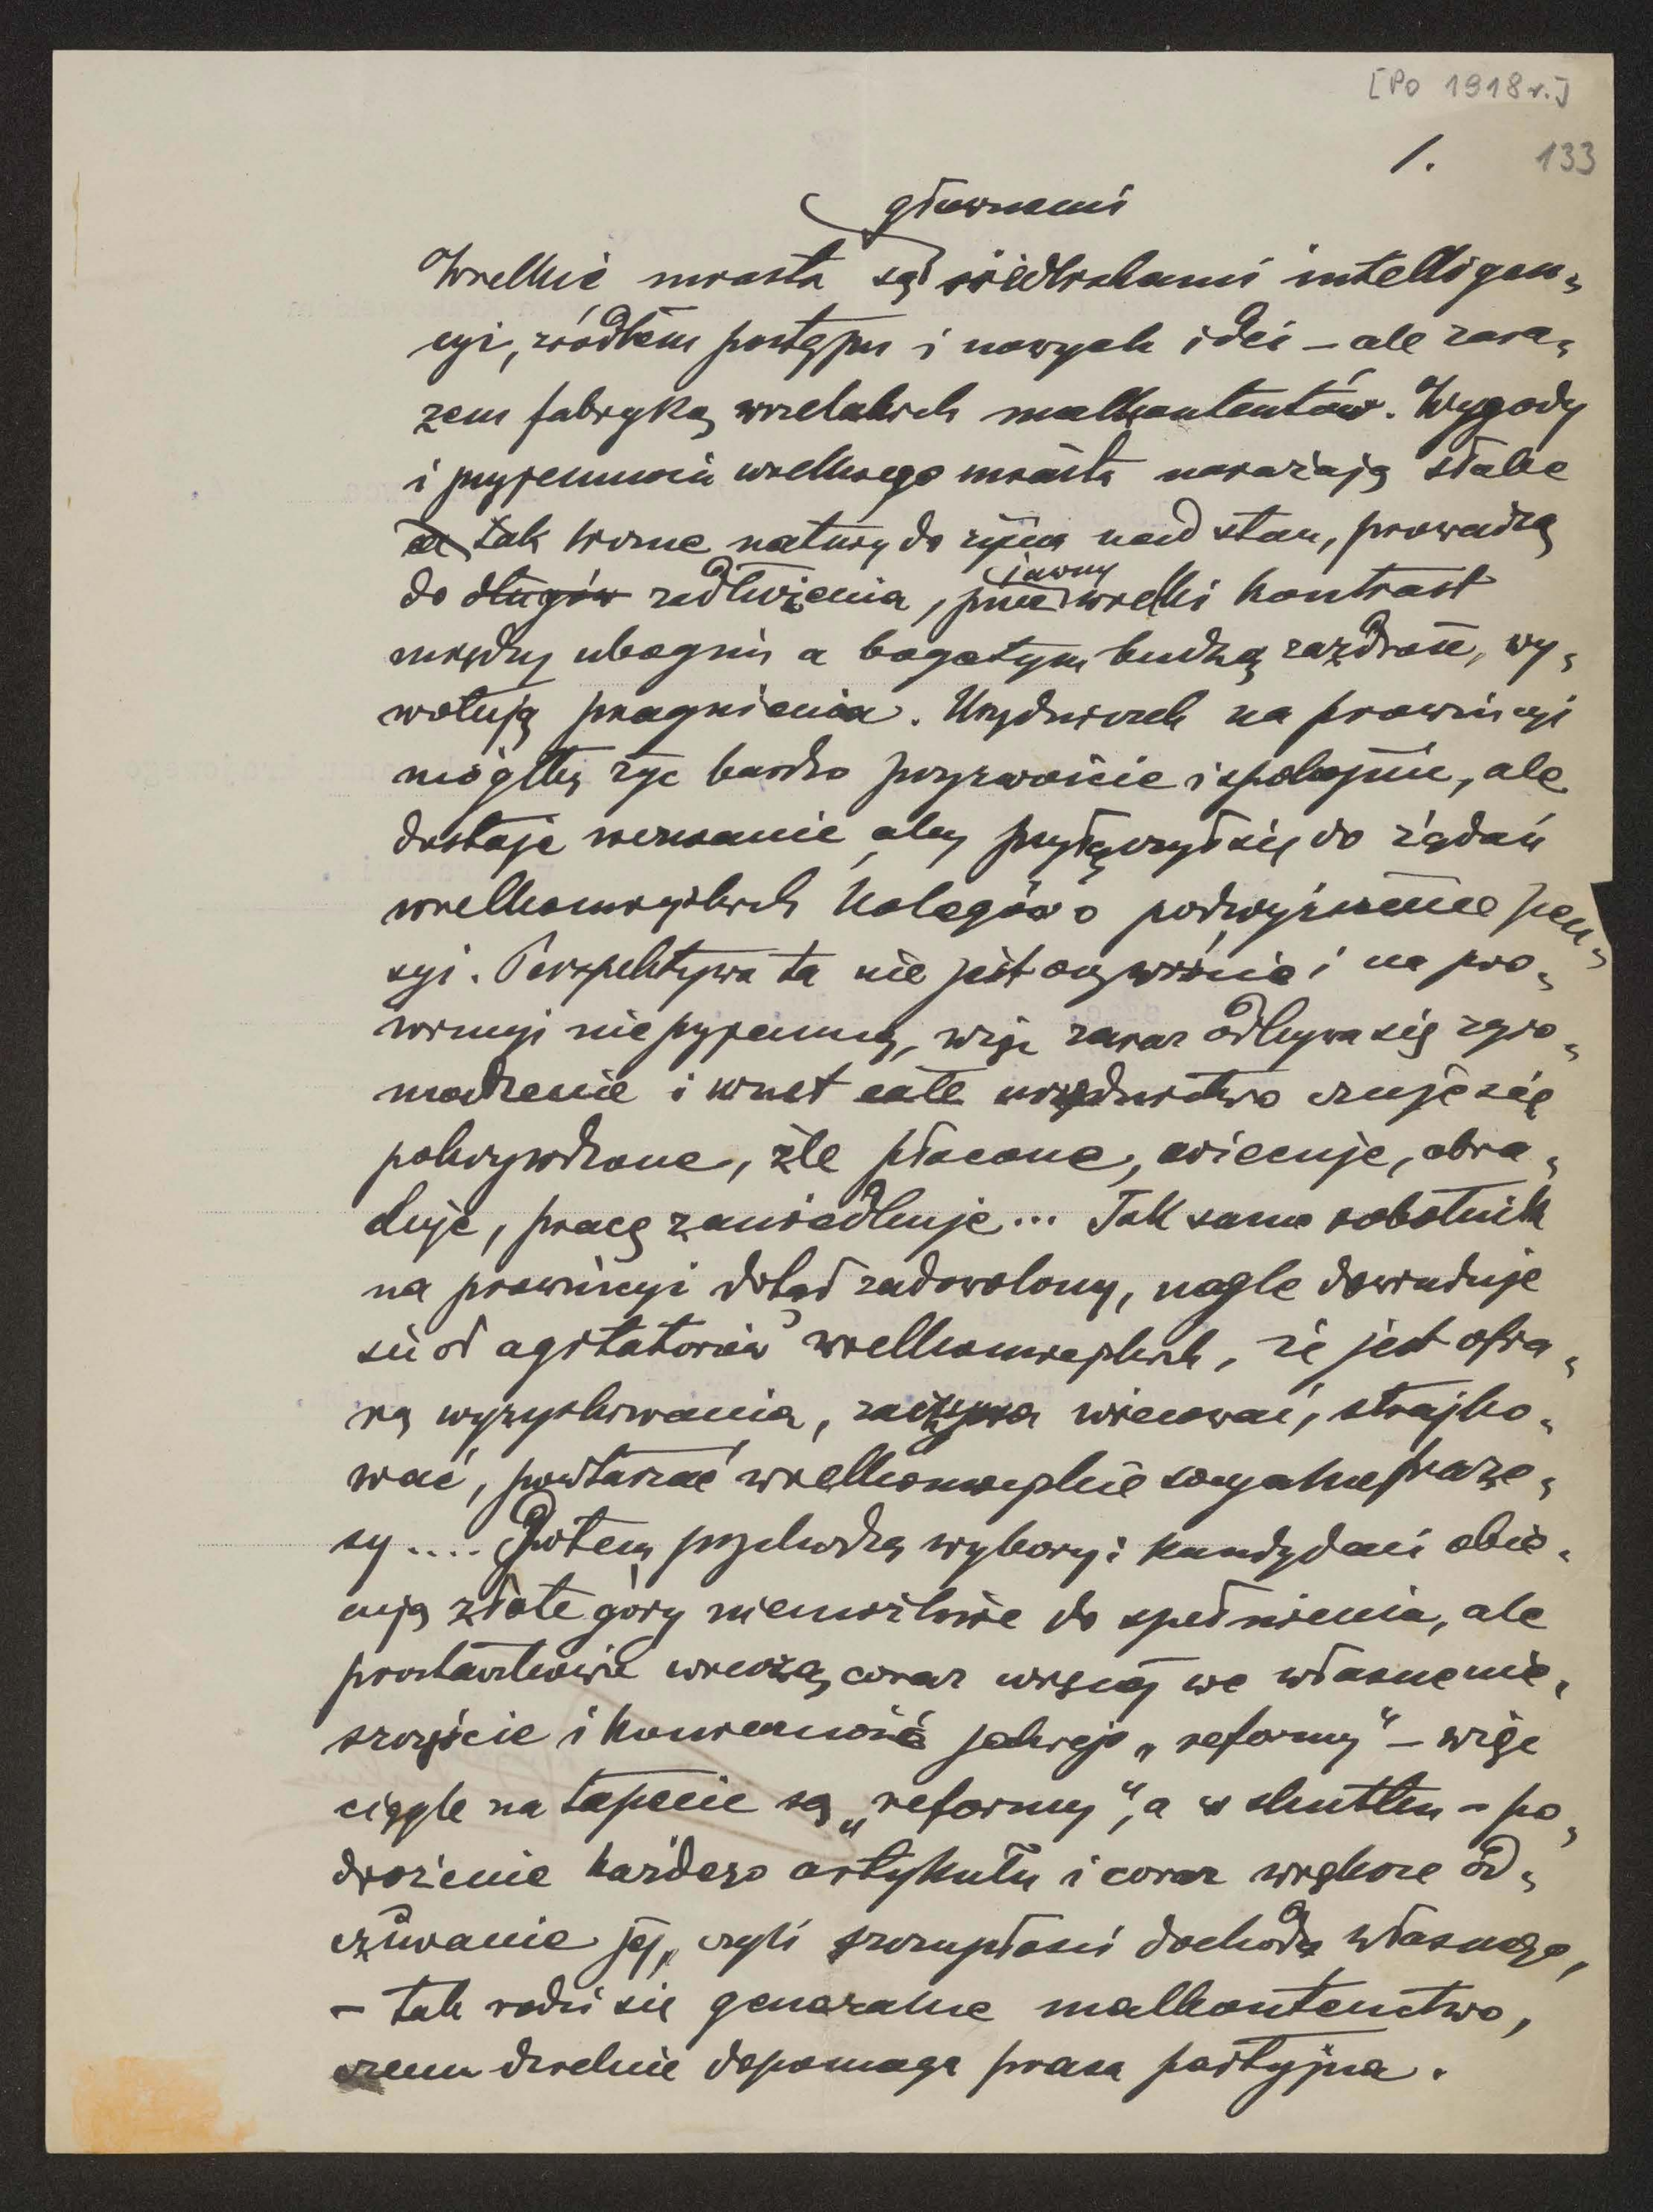 [Po 1918 r.]
1. 133
głównemi
Wielkie miasta są siedliskami intelligen=
cyi, źródłem postępu i nowych idei – ale zara=
zem fabryką wszelakich malkontentów. Wygody
i przyjemności wielkiego miasta narażają słabe
tak liczne natury do życia nad stan, prowadzą
do długów zadłużenia, jawny wielki kontrast
między ubogim a bogatym budzą zazdrość, wy=
wołują pragnienia. Urzędniczek na prowincyi
mógłby żyć bardzo przyzwoicie i spokojnie, ale
dostaje wezwanie, aby przyłączył się do żądań
wielkomiejskich kolegów o podwyższenie pen=
syi. Perspektywa ta nie jest oczywiście i na pro=
wincyi nieprzyjemną, więc zaraz odbywa się zgro=
madzenie i wnet całe urzędnictwo czuje się
pokrzywdzone, źle płacone, wiecuje, obra=
duje, pracę zaniedbuje... Tak samo robotnik
na prowincyi dotąd zadowolony, nagle dowiaduje
się od agitatorów wielkomiejskich, że jest ofia=
rą wyzyskiwania, zaczyna wiecować, strajko=
wać, powtarzać wielkomiejskie socyalne fraze=
sy.... Potem przychodzą wybory: kandydaci obie=
cują złote góry niemożliwe do spełnienia, ale
prostaczkowie wierzą coraz więcej we własne nie=
szczęście i konieczność jakiejś „reformy" – więc
ciągle na tapecie są „reformy", a w skutku – po=
drożenie każdego artykułu i coraz większe od=
czuwanie jej, czyli szczupłości dochodu własnego,
– tak rodzi się generalne malkontenctwo,
czemu dzielnie dopomaga prasa partyjna.